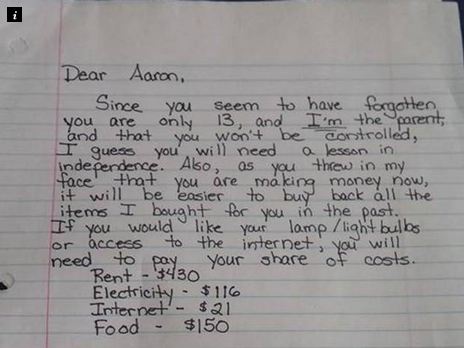 i
Dear Aaron,
Since you seem to have forgotten
you are only 13, and I'm the parent,
and that you won't be controlled,
I guess you will need a lesson in
independence. Also, as you threw in my
face that you are making money now,
it will be easier to buy back all the
items I bought for you in the past.
If you would like your lamp/lightbulbs
or access to the internet, you will
need to pay your share of costs.
Rent - $430
Electricity - $116
Internet - $21
Food - $150